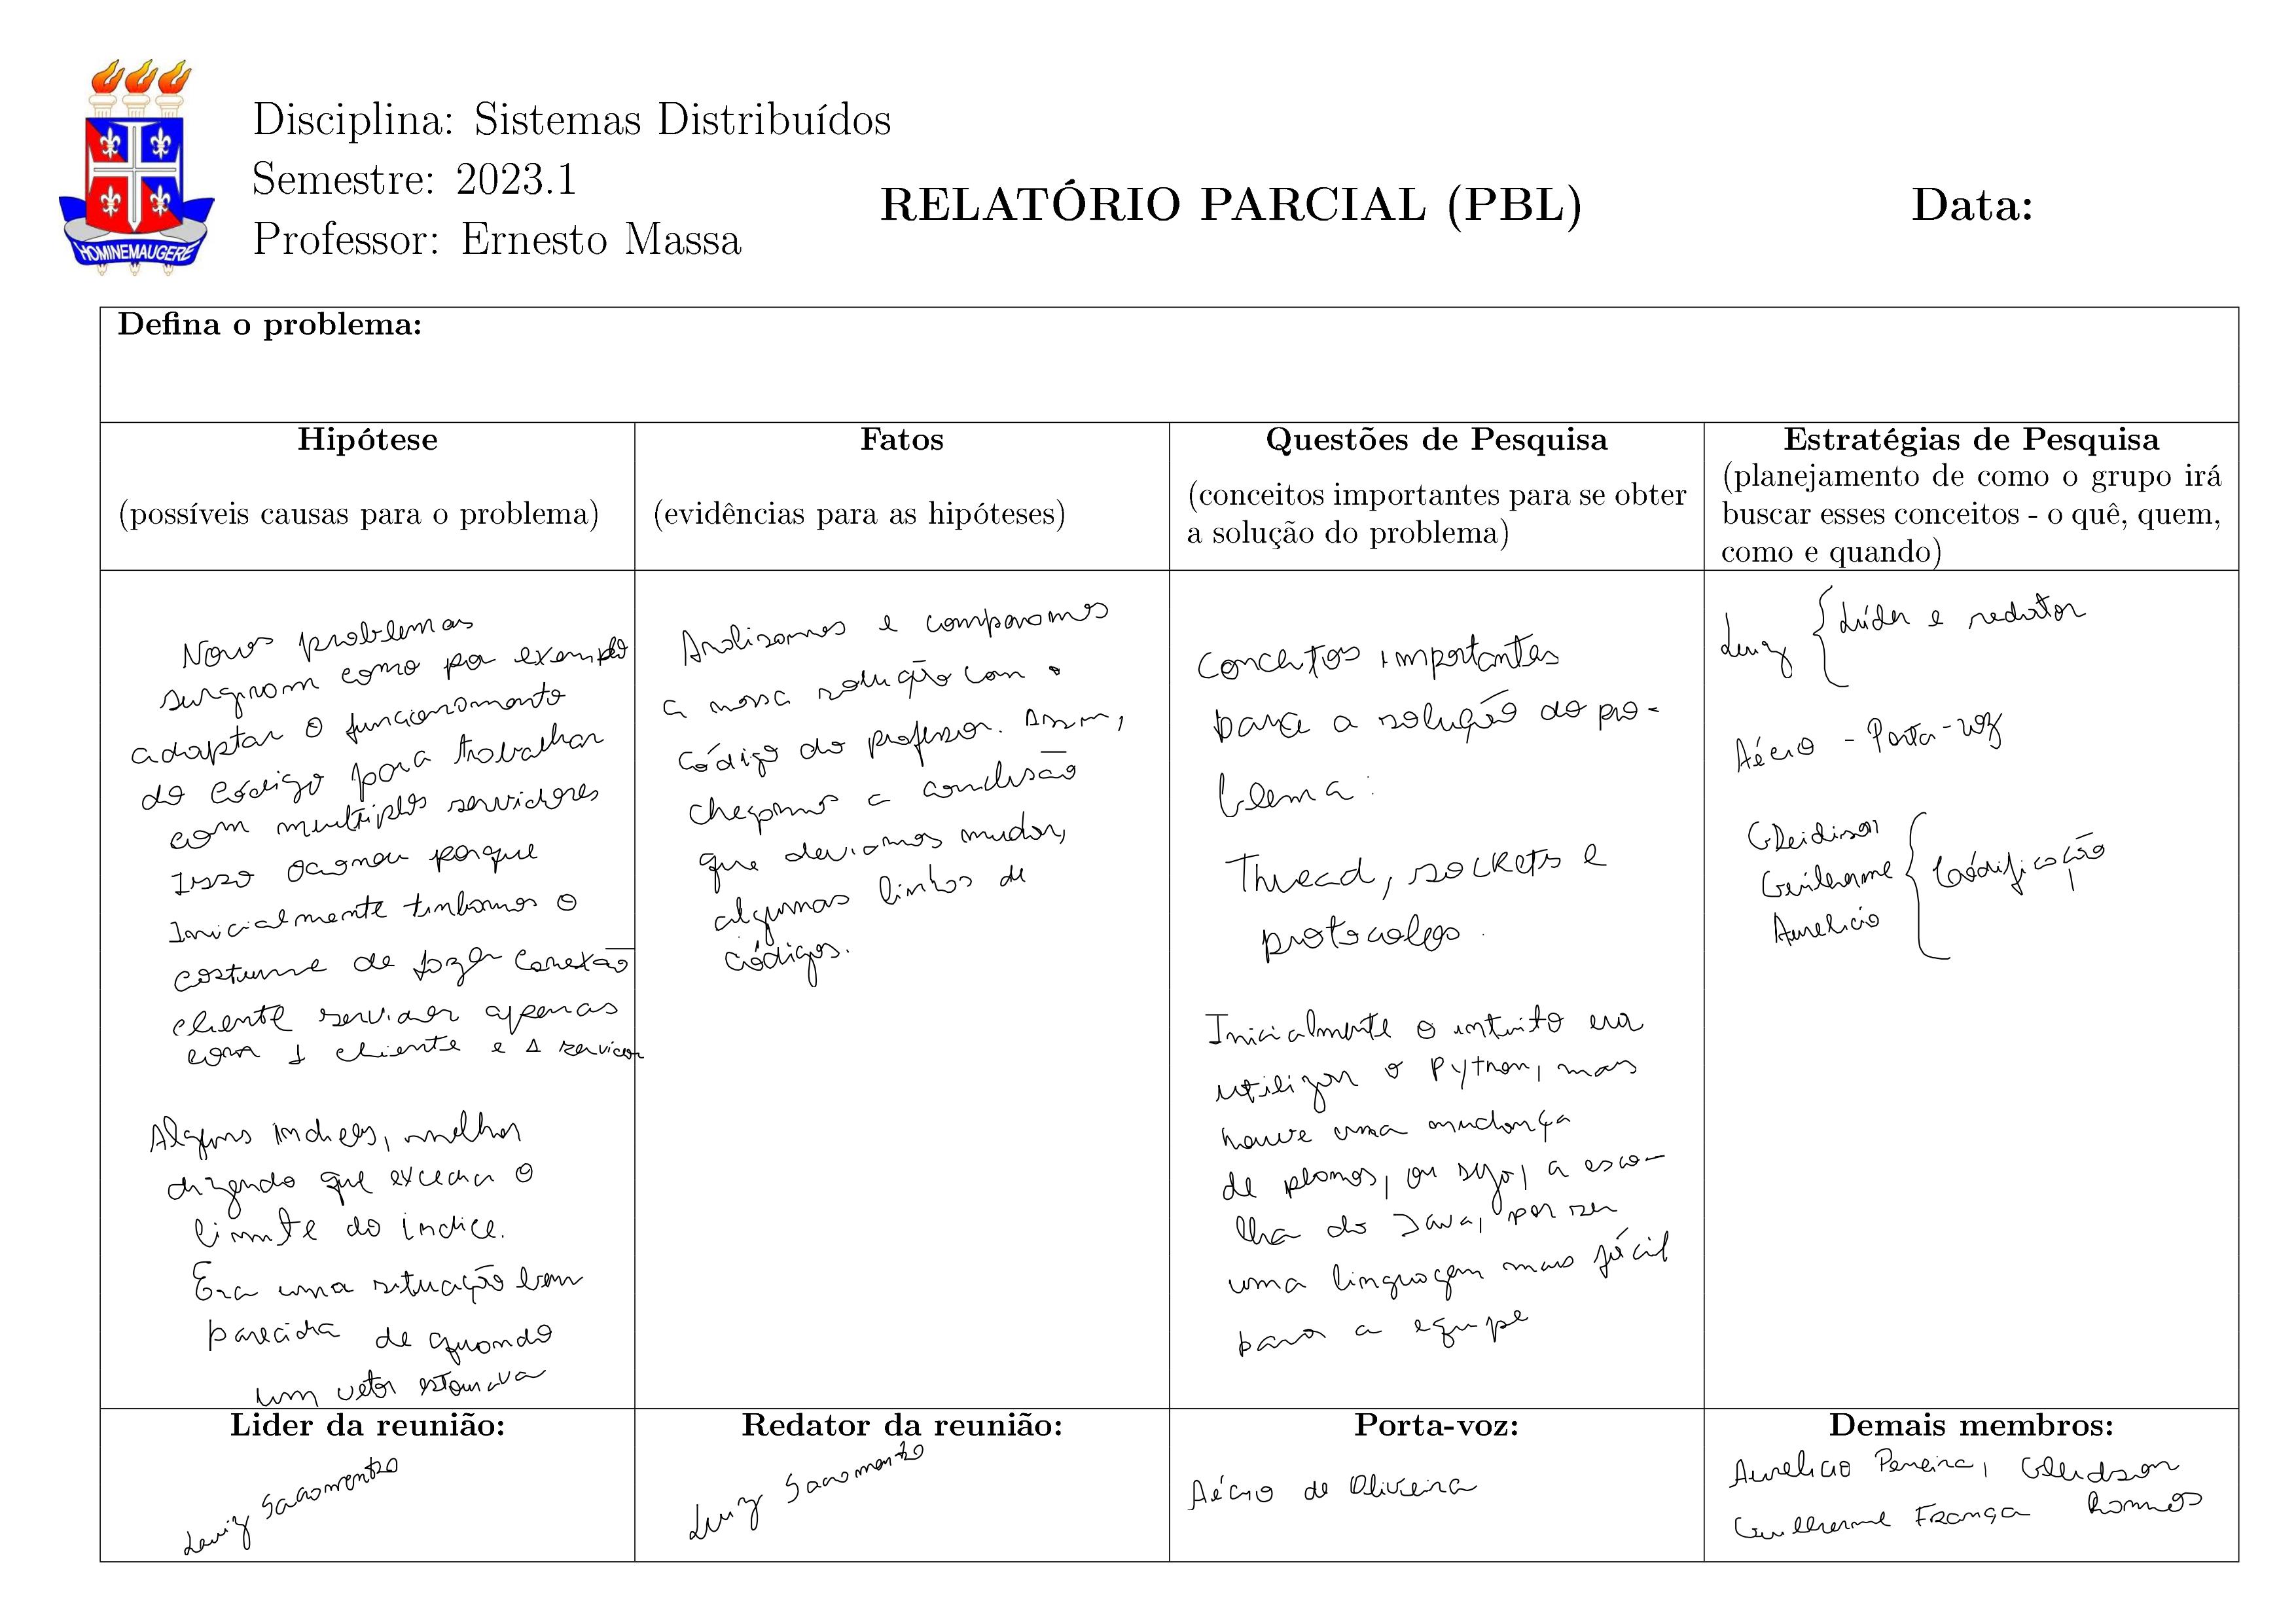 Disciplina: Sistemas Distribuídos
Semestre: 2023.1
Professor: Ernesto Massa
RELATÓRIO PARCIAL (PBL)
Data:
HOMINEMAUGERE
Defina o problema:
Hipótese
(possíveis causas para o problema)
Fatos
(evidências para as hipóteses)
Questões de Pesquisa
(conceitos importantes para se obter
a solução do problema)
Estratégias de Pesquisa
(planejamento de como o grupo irá
buscar esses conceitos - o quê, quem,
como e quando)
Novos problemas
surgiram como por exemplo
adaptar o funcionamento
do código para trabalhar
com multiplos servidores
Isso ocorreu porque
Inicialmente tinhamos o
costume de fazer conexão
cliente servidor apenas
com 1 cliente e 1 servidor
Alguns indices, melhor
dizendo que excedia o
limite do índice.
Era uma situação bem
parecida de quando
um vetor estourava
Analisamos e comparamos
a nossa solução com o
código do professor. Assim,
chegamos a conclusão
que deviamos mudar,
algumas linhas de
códigos.
Conceitos importantes
para a solução do pro-
blema:
Thread, sockets e
protocolos.
Inicialmente o intuito era
utilizar o Python, mas
houve uma mudança
de planos, ou seja, a esco-
lha do Java, por ser
uma linguagem mais fácil
para a equipe
Luiz { Líder e redator
Aécio - Porta-voz
Gleidison
Guilherme { Códificação
Aurelicio
Lider da reunião:
Luiz Sacramento
Redator da reunião:
Luiz Sacramento
Porta-voz:
Aécio de Oliveira
Demais membros:
Aurelicio Pereira, Gleidson
Guilherme França Ramos